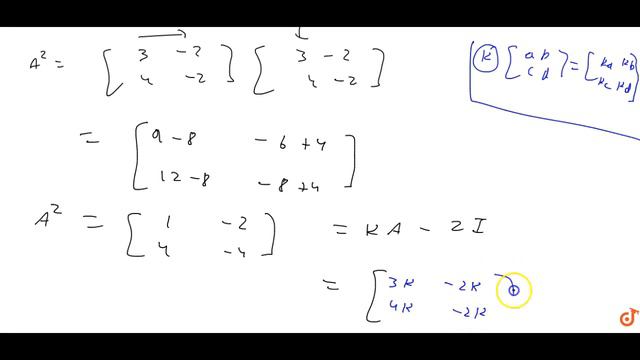 A² = [ 3 -2 ] [ 3 -2 ]
4 -2 4 -2
K [ a b ] = [ Ka Kb ]
c d Kc Kd
= [ 9-8 -6+4 ]
12-8 -8+4
A² = [ 1 -2 ] = KA - 2I
4 -4
= [ 3K -2K ]
4K -2K